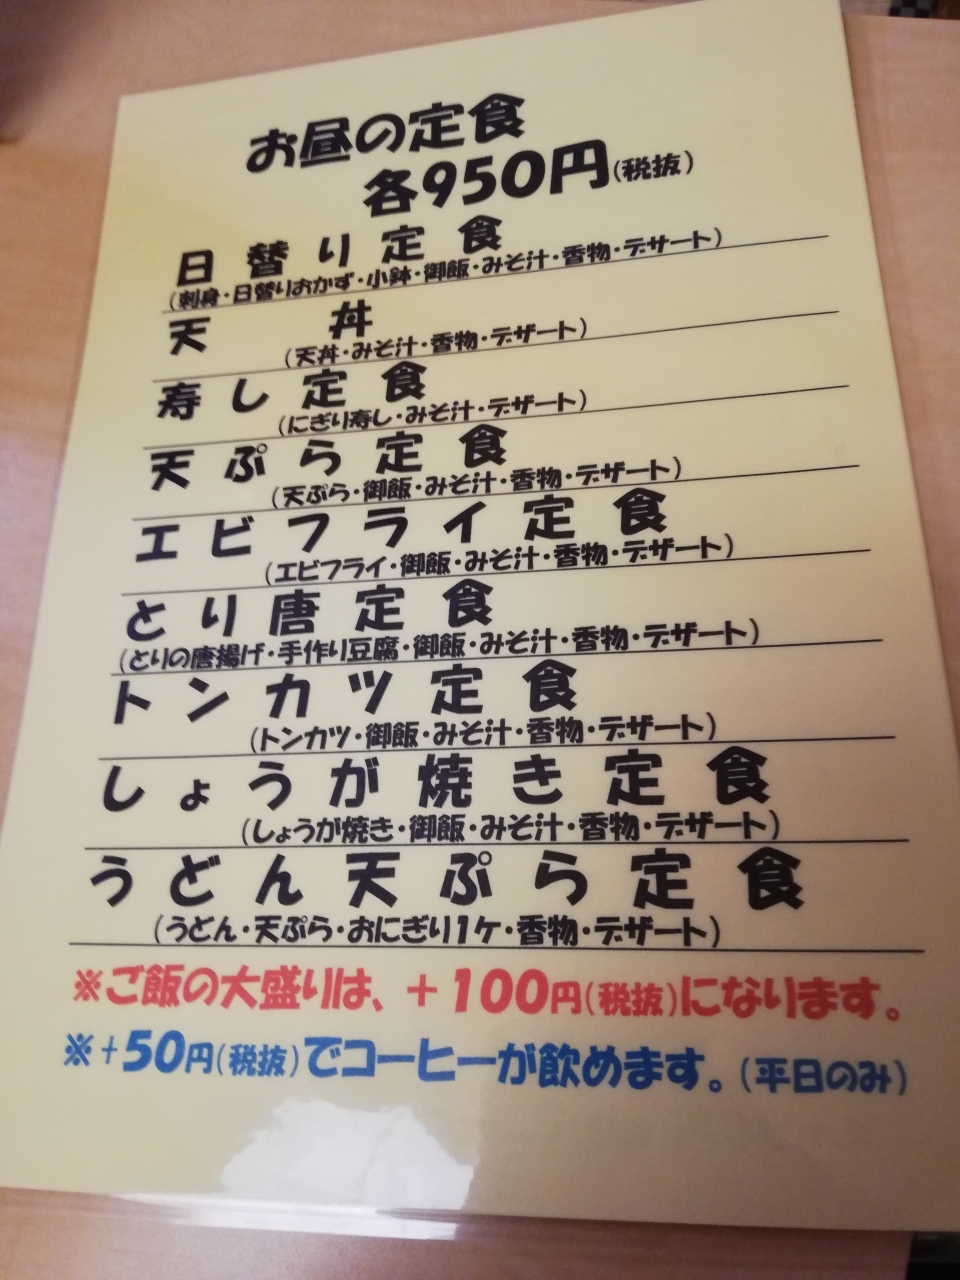 お昼の定食
各950円(税抜)
日替り定食
(刺身・日替りおかず・小鉢・御飯・みそ汁・香物・デザート)
天丼
(天丼・みそ汁・香物・デザート)
寿し定食
(にぎり寿し・みそ汁・デザート)
天ぷら定食
(天ぷら・御飯・みそ汁・香物・デザート)
エビフライ定食
(エビフライ・御飯・みそ汁・香物・デザート)
とり唐定食
(とりの唐揚げ・手作り豆腐・御飯・みそ汁・香物・デザート)
トンカツ定食
(トンカツ・御飯・みそ汁・香物・デザート)
しょうが焼き定食
(しょうが焼き・御飯・みそ汁・香物・デザート)
うどん天ぷら定食
(うどん・天ぷら・おにぎり1ケ・香物・デザート)
※ご飯の大盛りは、+100円(税抜)になります。
※+50円(税抜)でコーヒーが飲めます。(平日のみ)